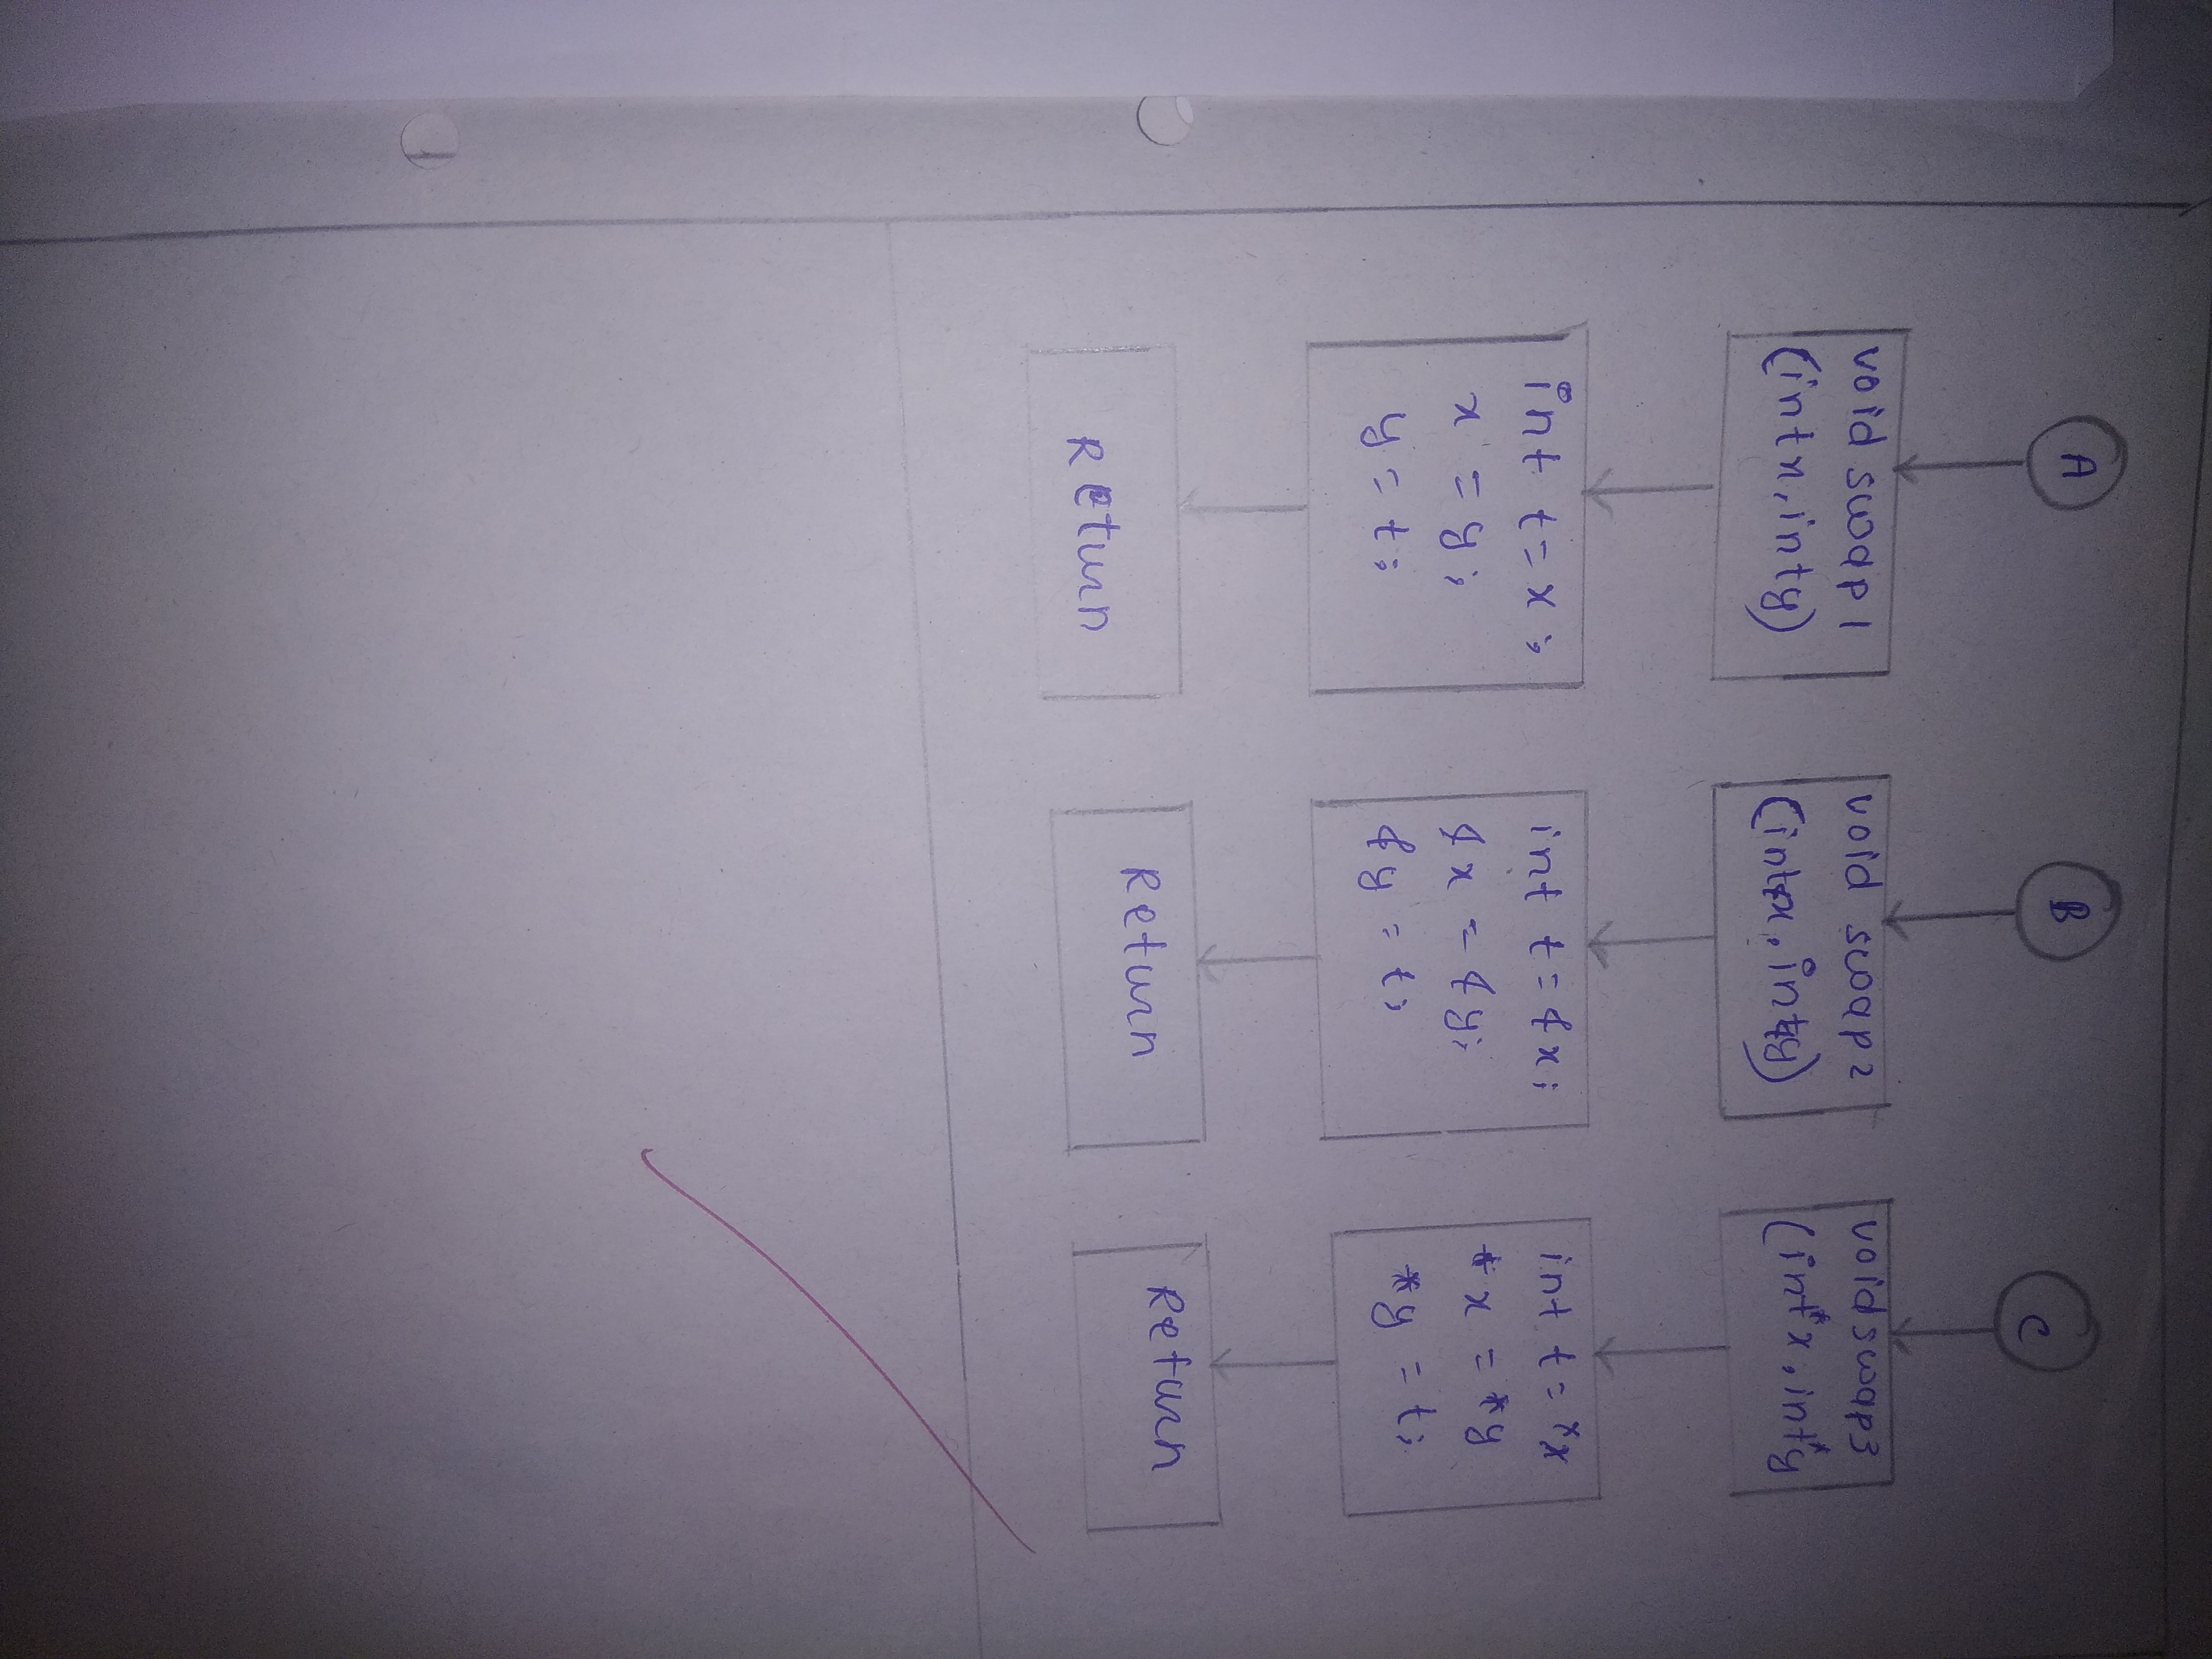 A
void swap1
(int x, int y)
int t = x;
x = y;
y = t;
Return
B
void swap2
int t = &x;
&x = &y;
&y = t;
Return
C
void swap3
(int* x, int* y
int t = *x
*x = *y
*y = t;
Return